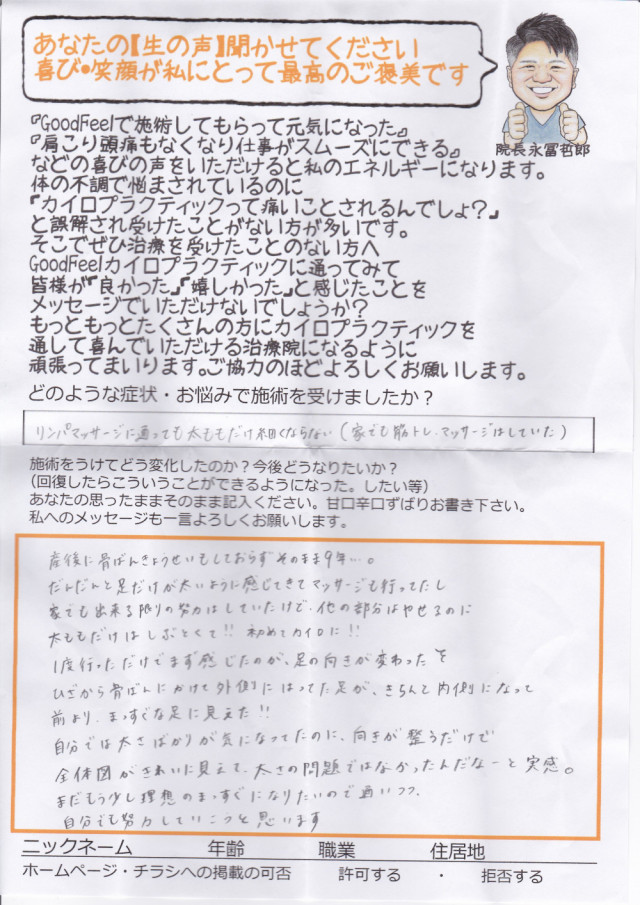 あなたの【生の声】聞かせてください
喜び・笑顔が私にとって最高のご褒美です
院長永冨哲郎
『GoodFeelで施術してもらって元気になった』
『肩こり頭痛もなくなり仕事がスムーズにできる』
などの喜びの声をいただけると私のエネルギーになります。
体の不調で悩まされているのに
「カイロプラクティックって痛いことされるんでしょ?」
と誤解され受けたことがない方が多いです。
そこでぜひ治療を受けたことのない方へ
GoodFeelカイロプラクティックに通ってみて
皆様が「良かった」「嬉しかった」と感じたことを
メッセージでいただけないでしょうか?
もっともっとたくさんの方にカイロプラクティックを
通して喜んでいただける治療院になるように
頑張ってまいります。ご協力のほどよろしくお願いします。
どのような症状・お悩みで施術を受けましたか?
リンパマッサージに通っても太ももだけ細くならない(家でも筋トレ、マッサージはしていた)
施術をうけてどう変化したのか?今後どうなりたいか?
(回復したらこういうことができるようになった。したい等)
あなたの思ったままそのまま記入ください。甘口辛口ずばりお書き下さい。
私へのメッセージも一言よろしくお願いします。
産後に骨ばんきょうせいもしておらずそのまま9年…。
だんだんと足だけが太いように感じてきてマッサージも行ってたし
家でも出来る限りの努力はしていたけど、他の部分はやせるのに
太ももだけはしぶとくて!!初めてカイロに!!
1度行っただけでまず感じたのが、足の向きが変わった
ひざから骨ばんにかけて外側にはってた足が、きちんと内側になって
前より、まっすぐな足に見えた!!
自分では太さばかりが気になってたのに、向きが整うだけで
全体図がきれいに見えて、太さの問題ではなかったんだなーと実感。
まだもう少し理想のまっすぐになりたいので通いつつ、
自分でも努力していこうと思います
ニックネーム 年齢 職業 住居地
ホームページ・チラシへの掲載の可否 許可する ・ 拒否する